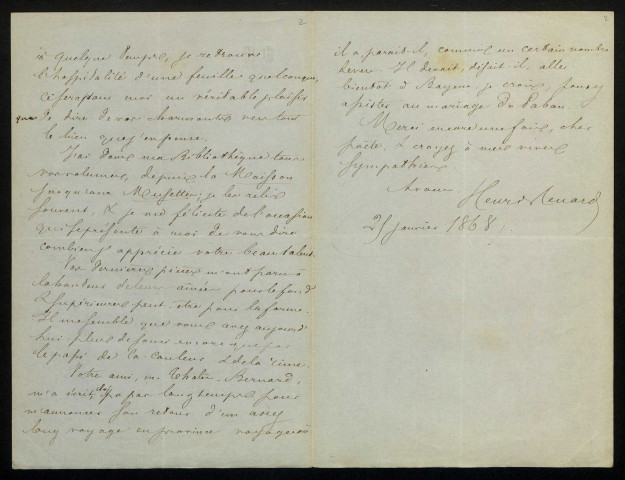 2
à quelque temps, je retrouve
l'hospitalité d'une feuille quelconque,
ce sera pour moi un véritable plaisir
que de dire de vos charmants vers tout
le bien que j'en pense.
J'ai dans ma Bibliothèque tous
vos volumes, depuis la Moisson
jusqu'aux Musettes; je les relis
souvent, & je me félicite de l'occasion
qui se présente à moi de vous dire
combien j'apprécie votre beau talent.
Vos dernières pièces m'ont paru à
la hauteur de leurs aînées pour le fond
& supérieures peut-être pour la forme.
Il me semble que vous avez aujourd'
hui plus de souci encore que par
le passé de la couleur & de la rime.
Votre ami, M. Thalès-Bernard,
m'a écrit il n'y a pas longtemps pour
m'annoncer son retour d'un assez
long voyage en province
2
il a paraît-il, commis un certain nombre
de vers. Il devait, disait-il, aller
bientôt à Bayeux, je crois, pour y
assister au mariage de
Merci encore une fois, cher
poète, & croyez à mes vives
sympathies
Henri Renard
25 janvier 1868.